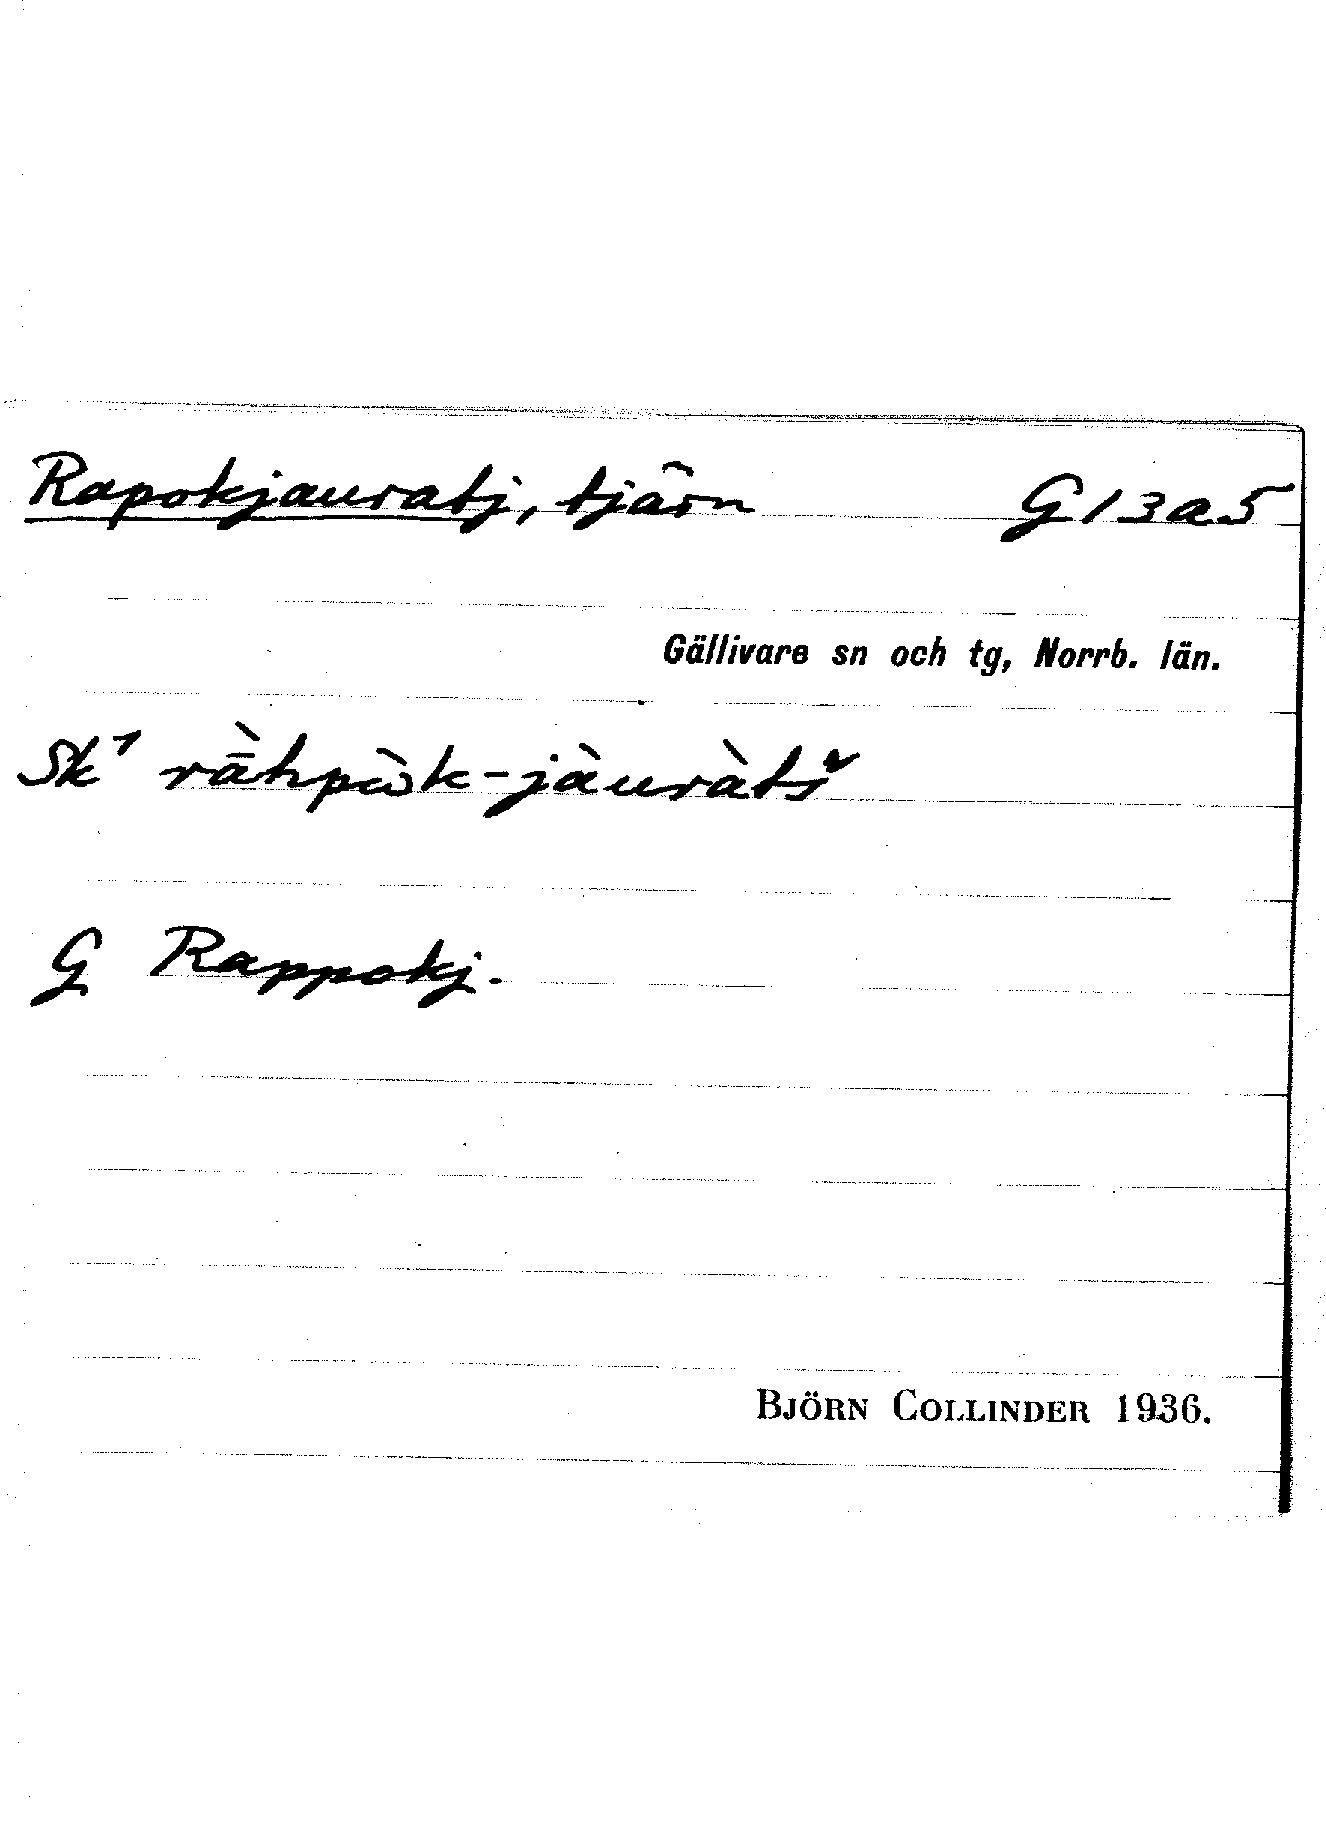 Rapokjauratj, tjärn G13a5
Gällivare sn och tg, Norrb. län.
Sk¹ rā̀hpὼk-jàuràtš
G Rappokj.
BJÖRN COLLINDER 1936.